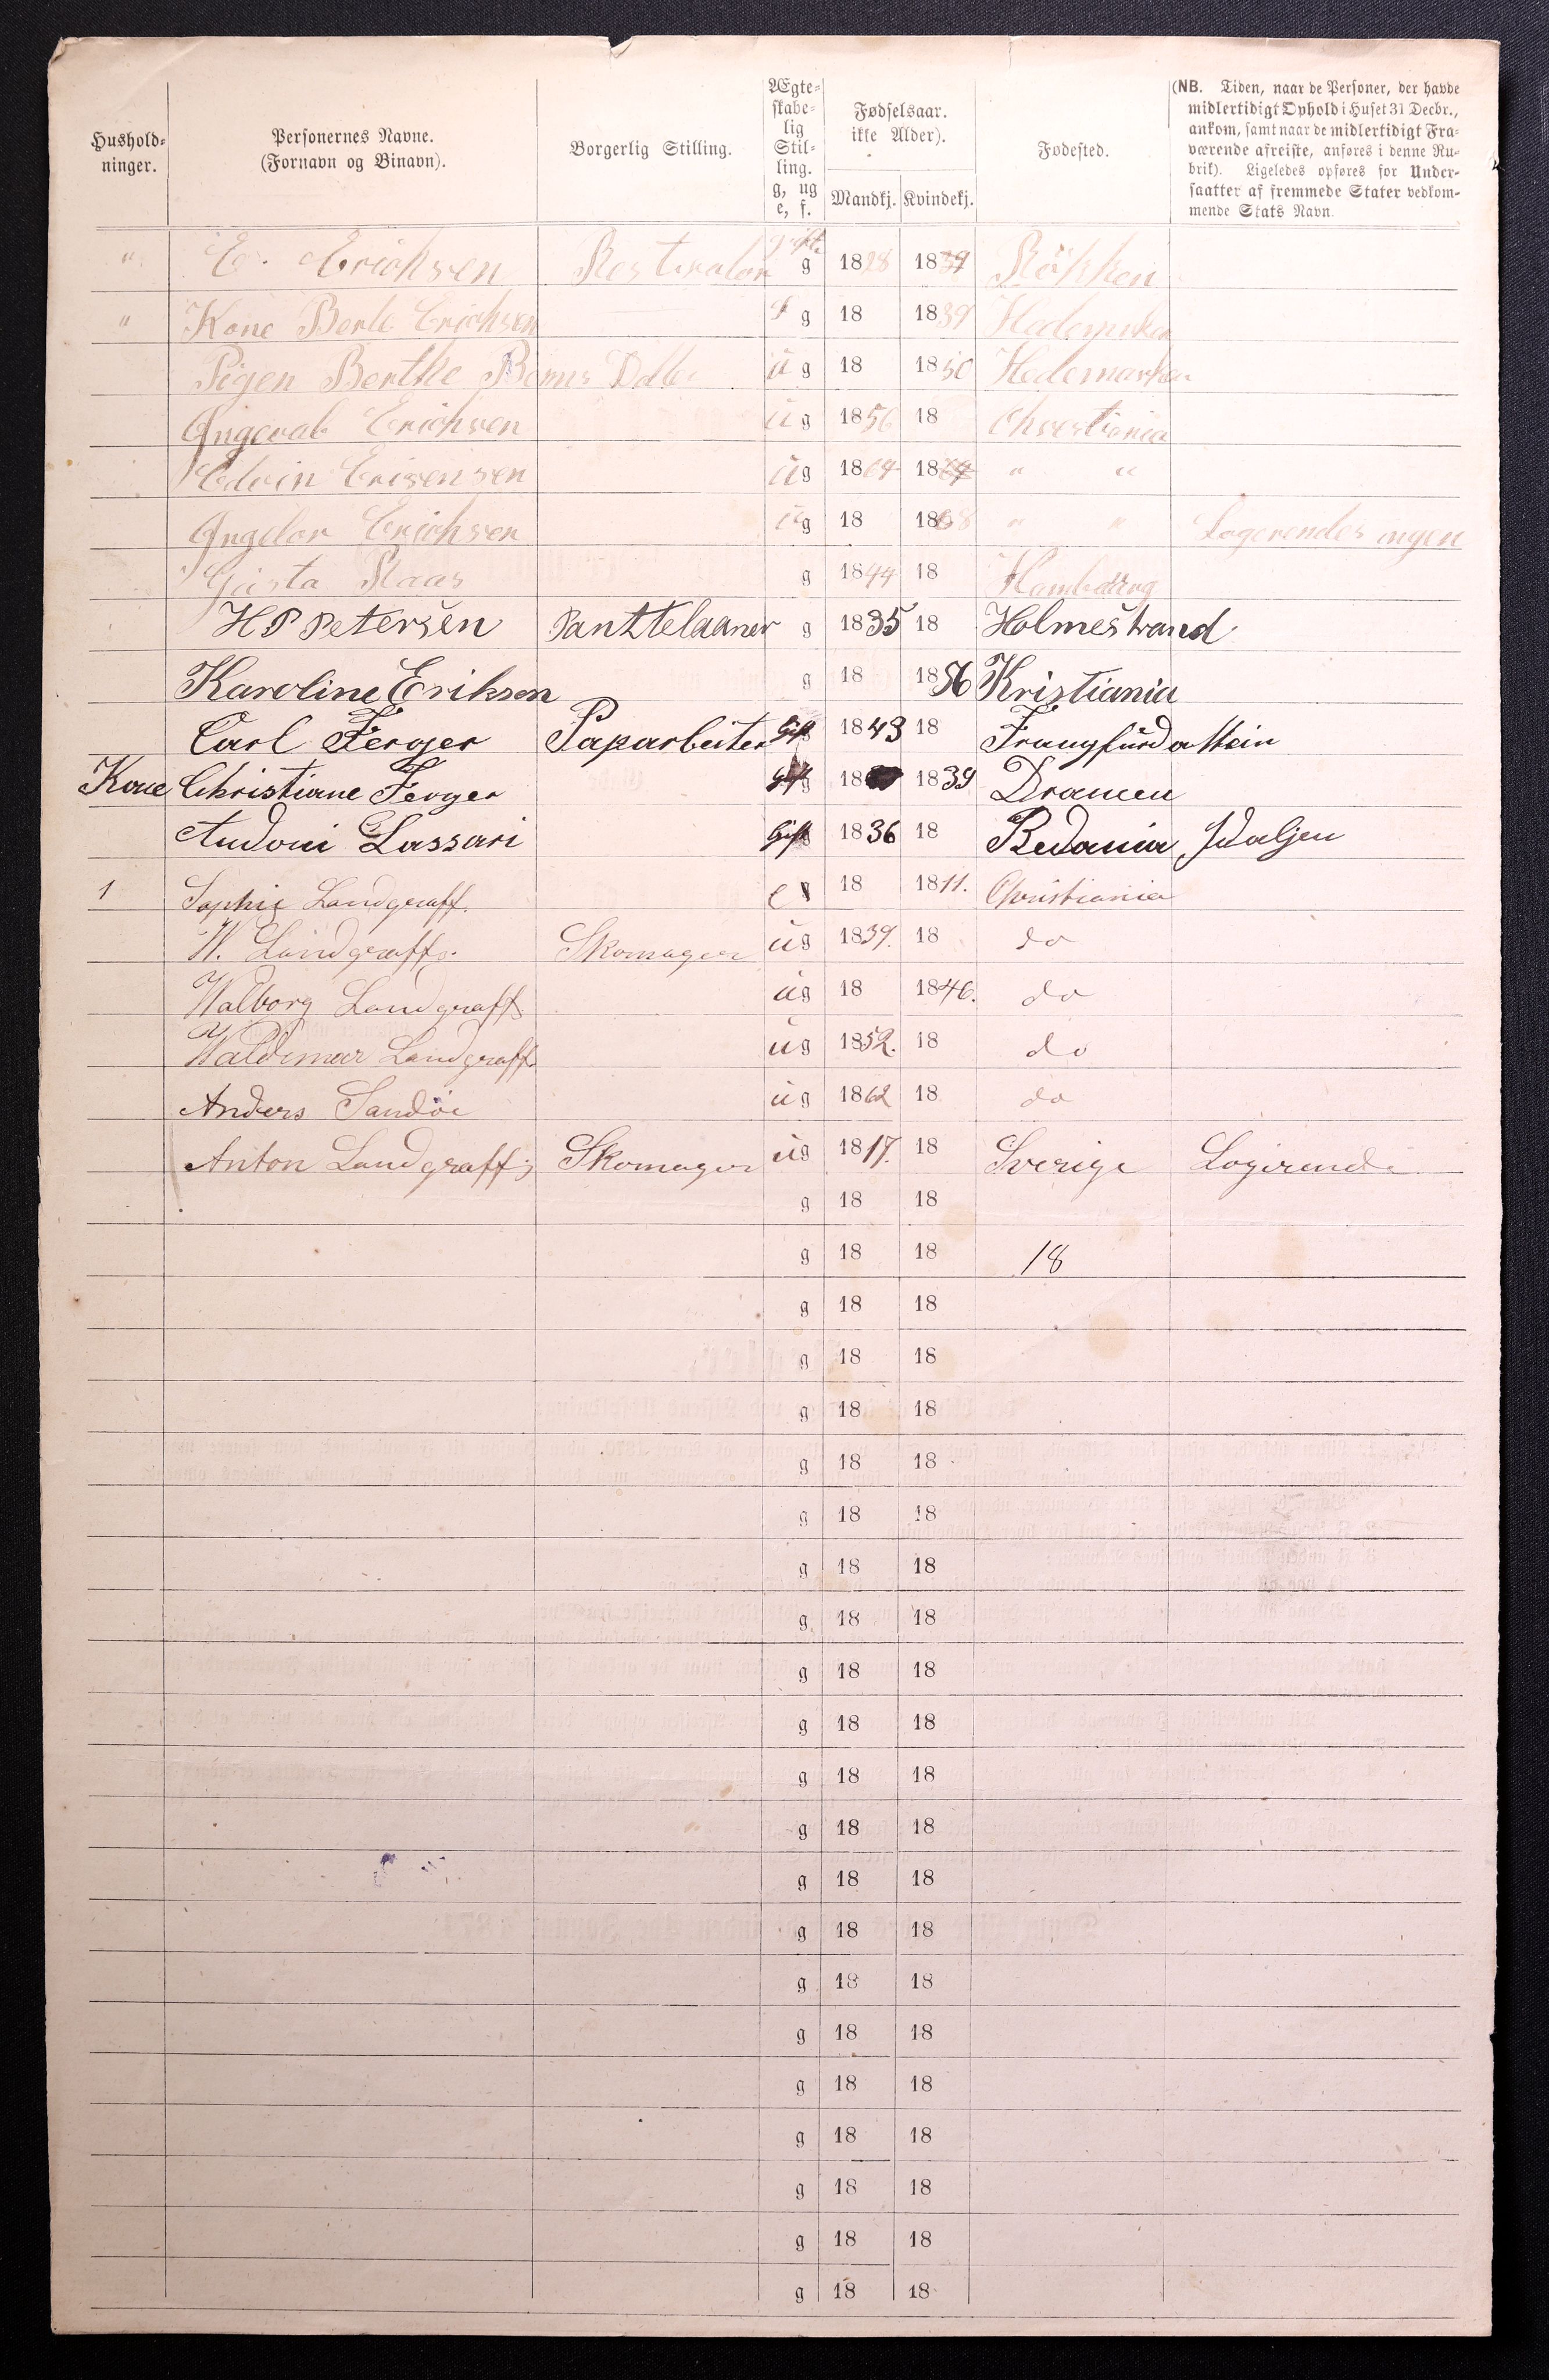 Hushold-
ninger.
Personernes Navne.
(Fornavn og Binavn).
Borgerlig Stilling.
Ægte-
skabe-
lig
Stil-
ling.
g, ug
e, f.
Fødselsaar.
ikke Alder).
Mandkj. Kvindekj.
Fødested.
(NB. Tiden, naar de Personer, der havde
midlertidigt Ophold i Huset 31 Decbr.,
ankom, samt naar de midlertidigt Fra-
værende afreiste, anføres i denne Ru-
brik). Ligeledes opføres for Under-
saatter af fremmede Stater vedkom-
mende Stats Navn.
" E. Erichsen g 1828 1839 Röhken
" Kone Berte Erichsen g 18 1839
Pigen Berthe ug 18 1850 Hedemarken
Erichsen ug 1856 18 Christiania
Edvin Erisensen ug 1864 1864 " "
Erichsen ug 18 1868 " " ingen
g 1844 18 Hamburg
H P Petersen Panttelaaner g 1835 18 Holmestrand
Karoline Eriksen g 18 1856 Kristiania
Carl Ferger Paparbeiter Gift 1843 18 Frangfürd a Mein
Kone Christiane Ferger Gift 18 1839 Dramen
Andoni Lassari Gift 1836 18 Bedania Idaljen
1 Sophie Landgraff. e 18 1811. Christiania
W. Landgraff. Skomager ug 1839. 18 do
Walborg Landgraff ug 18 1846. do
Waldemar Landgraff ug 1852. 18 do
Anders Sandöe ug 1862 18 do
Anton Landgraff Skomager ug 1817. 18 Sverige Logirende
g 18 18
g 18 18 18
g 18 18
g 18 18
g 18 18
g 18 18
g 18 18
g 18 18
g 18 18
g 18 18
g 18 18
g 18 18
g 18 18
g 18 18
g 18 18
g 18 18
g 18 18
g 18 18
g 18 18
g 18 18
g 18 18
g 18 18